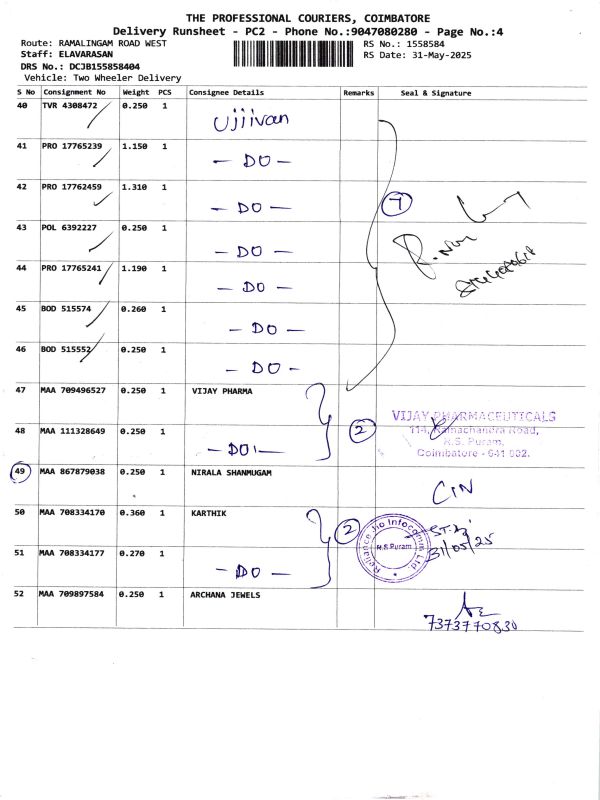 THE PROFESSIONAL COURIERS, COIMBATORE
Delivery Runsheet - PC2 - Phone No.:9047080280 - Page No.:4
Route: RAMALINGAM ROAD WEST
RS No.: 1558584
Staff: ELAVARASAN
RS Date: 31-May-2025
DRS No.: DCJB155858404
Vehicle: Two Wheeler Delivery
S No Consignment No Weight PCS Consignee Details Remarks Seal & Signature
40 TVR 4308472 0.250 1 Ujiivan
41 PRO 17765239 1.150 1 - DO -
42 PRO 17762459 1.310 1 - DO - 7
43 POL 6392227 0.250 1 - DO -
44 PRO 17765241 1.190 1 - DO -
45 BOD 515574 0.260 1 - DO -
46 BOD 515552 0.250 1 - DO -
47 MAA 709496527 0.250 1 VIJAY PHARMA
VIJAY PHARMACEUTICALS
48 MAA 111328649 0.250 1 - DO - 2
114, Ramachandra Road,
R.S. Puram,
Coimbatore - 641 002.
49 MAA 867879038 0.250 1 NIRALA SHANMUGAM
50 MAA 708334170 0.360 1 KARTHIK 2
Reliance Jio Infocomm Ltd.
R.S Puram
31/05/25
51 MAA 708334177 0.270 1 - DO -
52 MAA 709897584 0.250 1 ARCHANA JEWELS
7373770830